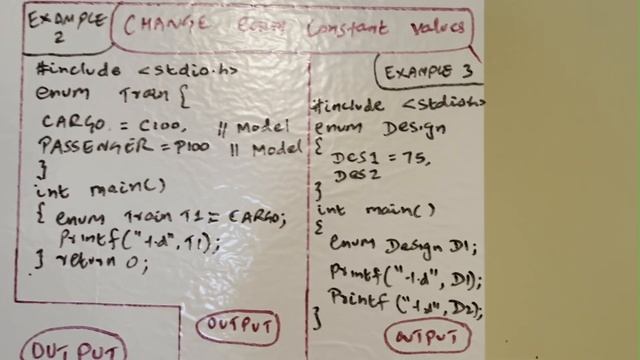 EXAMPLE 2
CHANGE enum Constant values
#include <stdio.h>
enum Train {
CARGO = C100, // Model
PASSENGER = P100 // Model
}
int main()
{ enum Train T1 = CARGO;
Printf("%d", T1);
} return 0;
OUTPUT
OUTPUT
EXAMPLE 3
#include <stdio.h>
enum Design
{
DES1 = 75,
DES2
}
int main()
{
enum Design D1;
Printf("%d", D1);
Printf("%d", D2);
}
OUTPUT